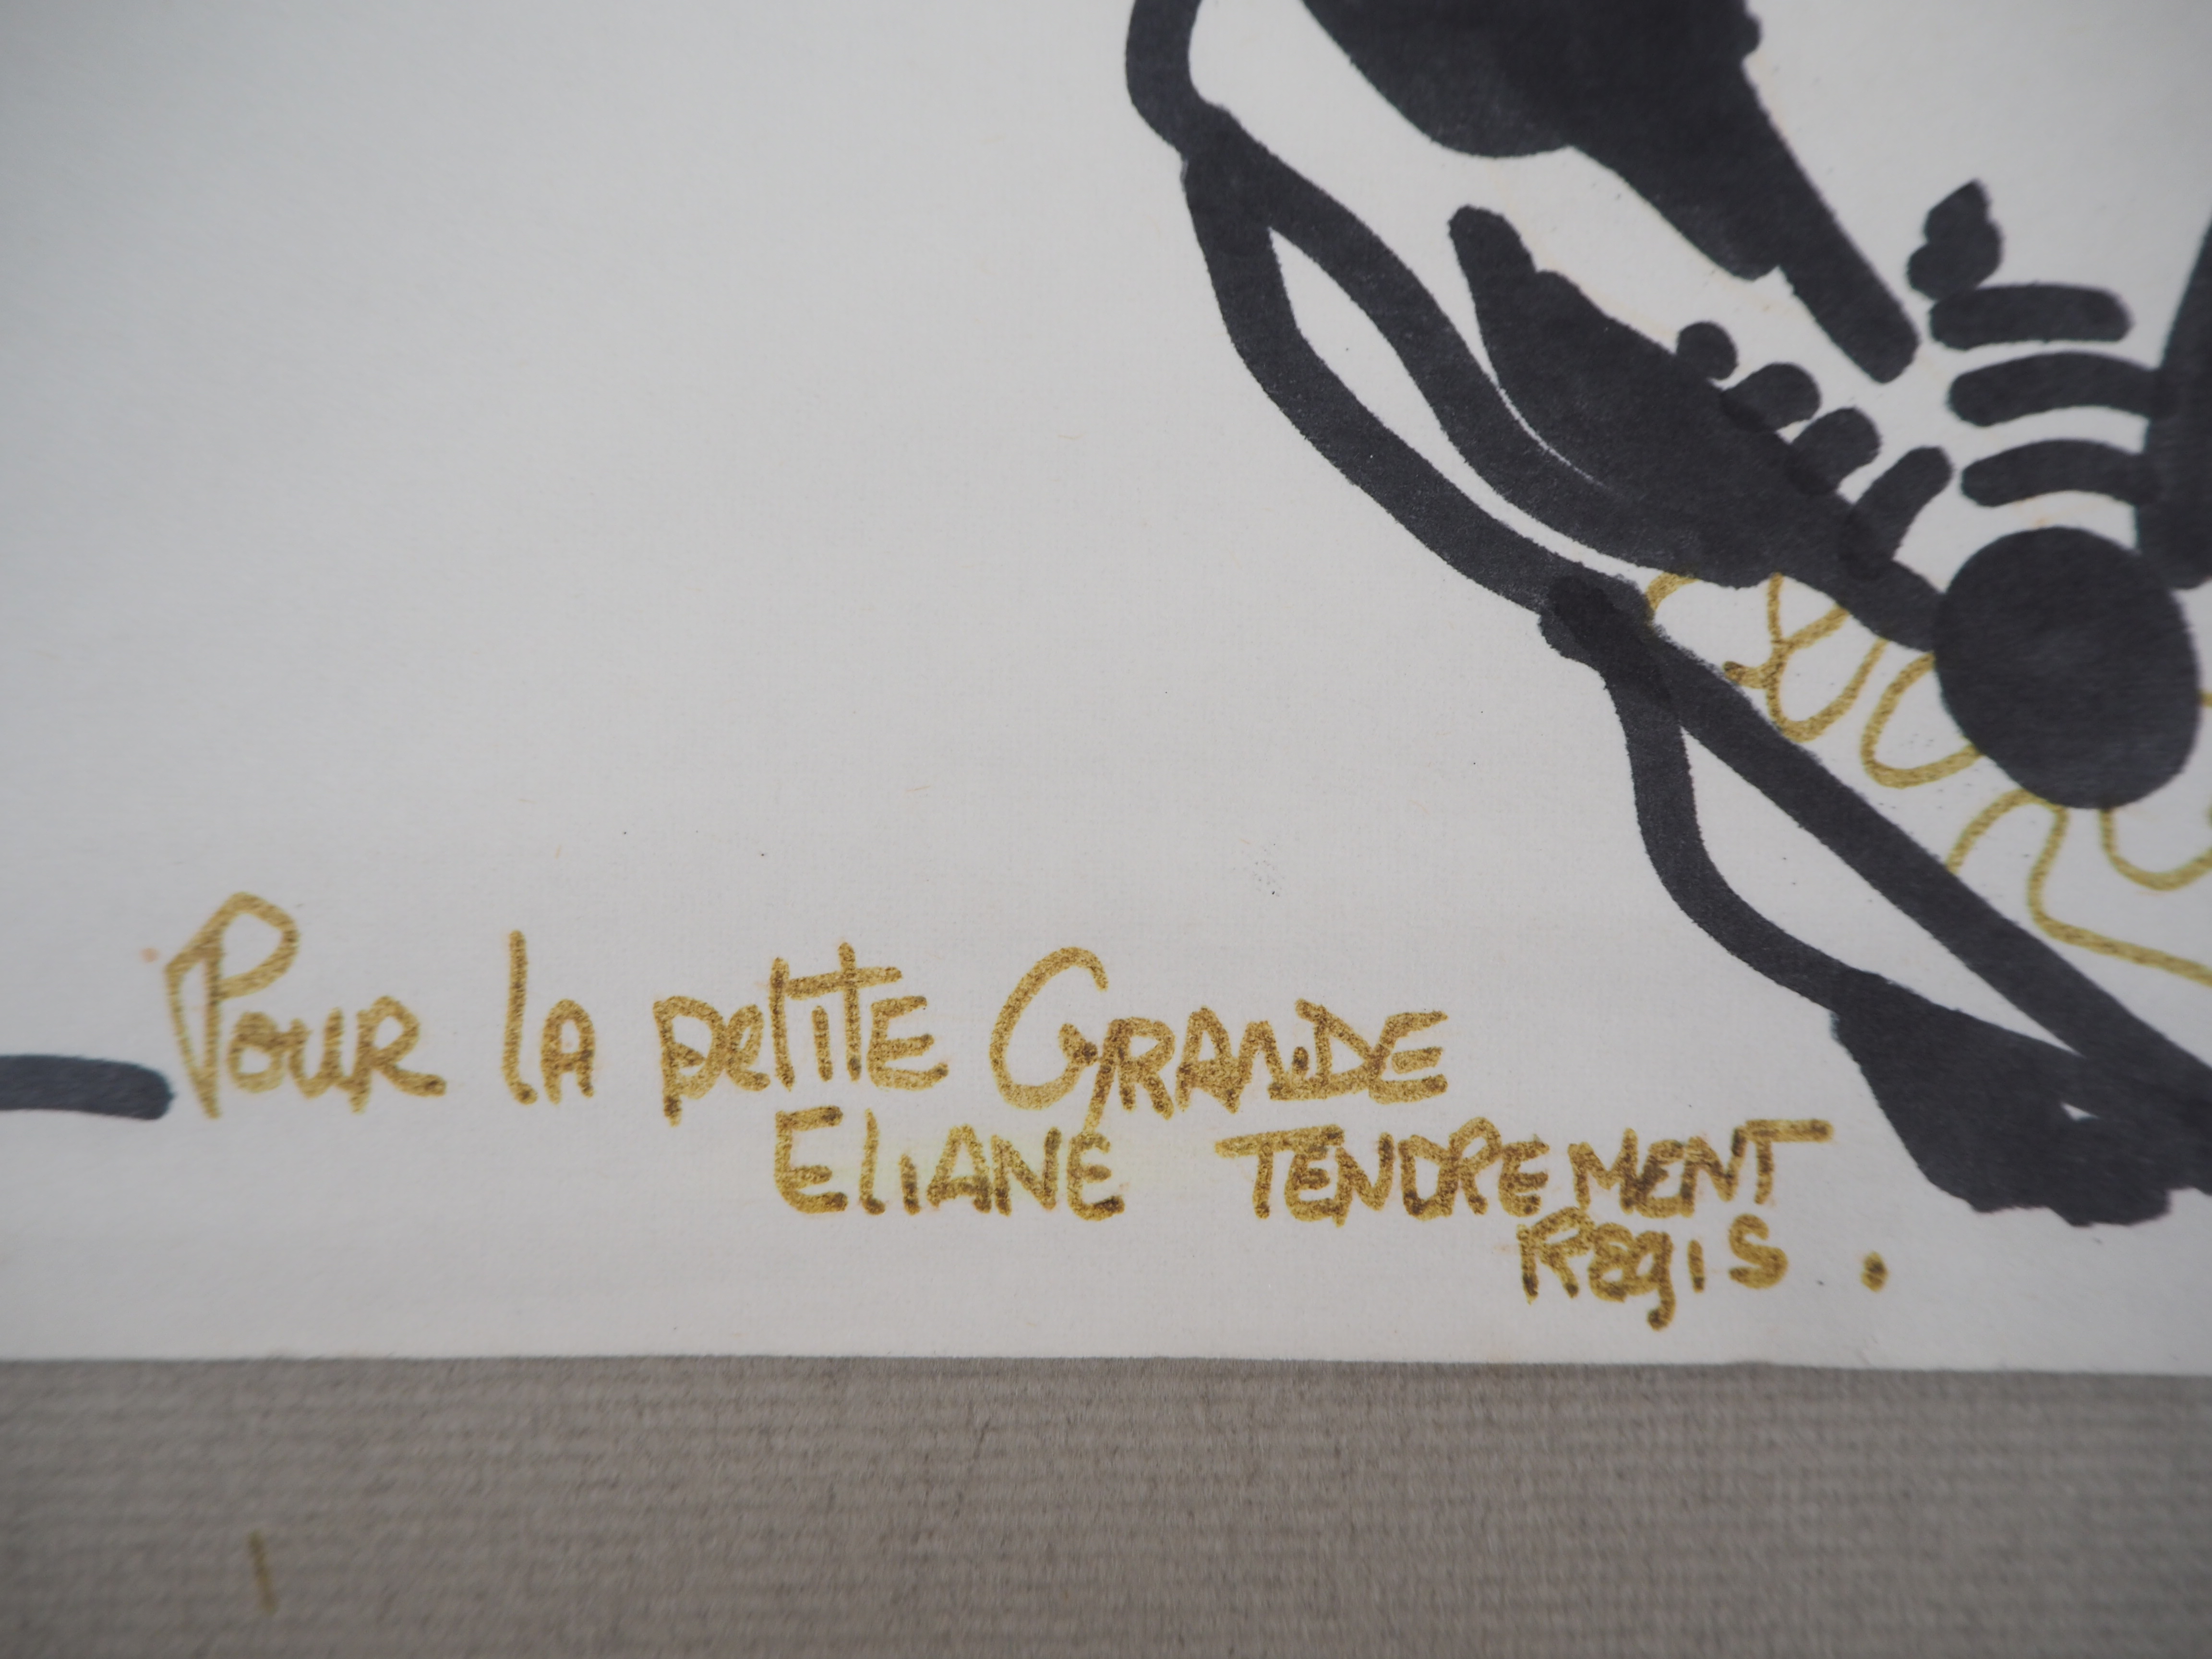 Pour la petite Grande
Eliane tendrement
Regis.